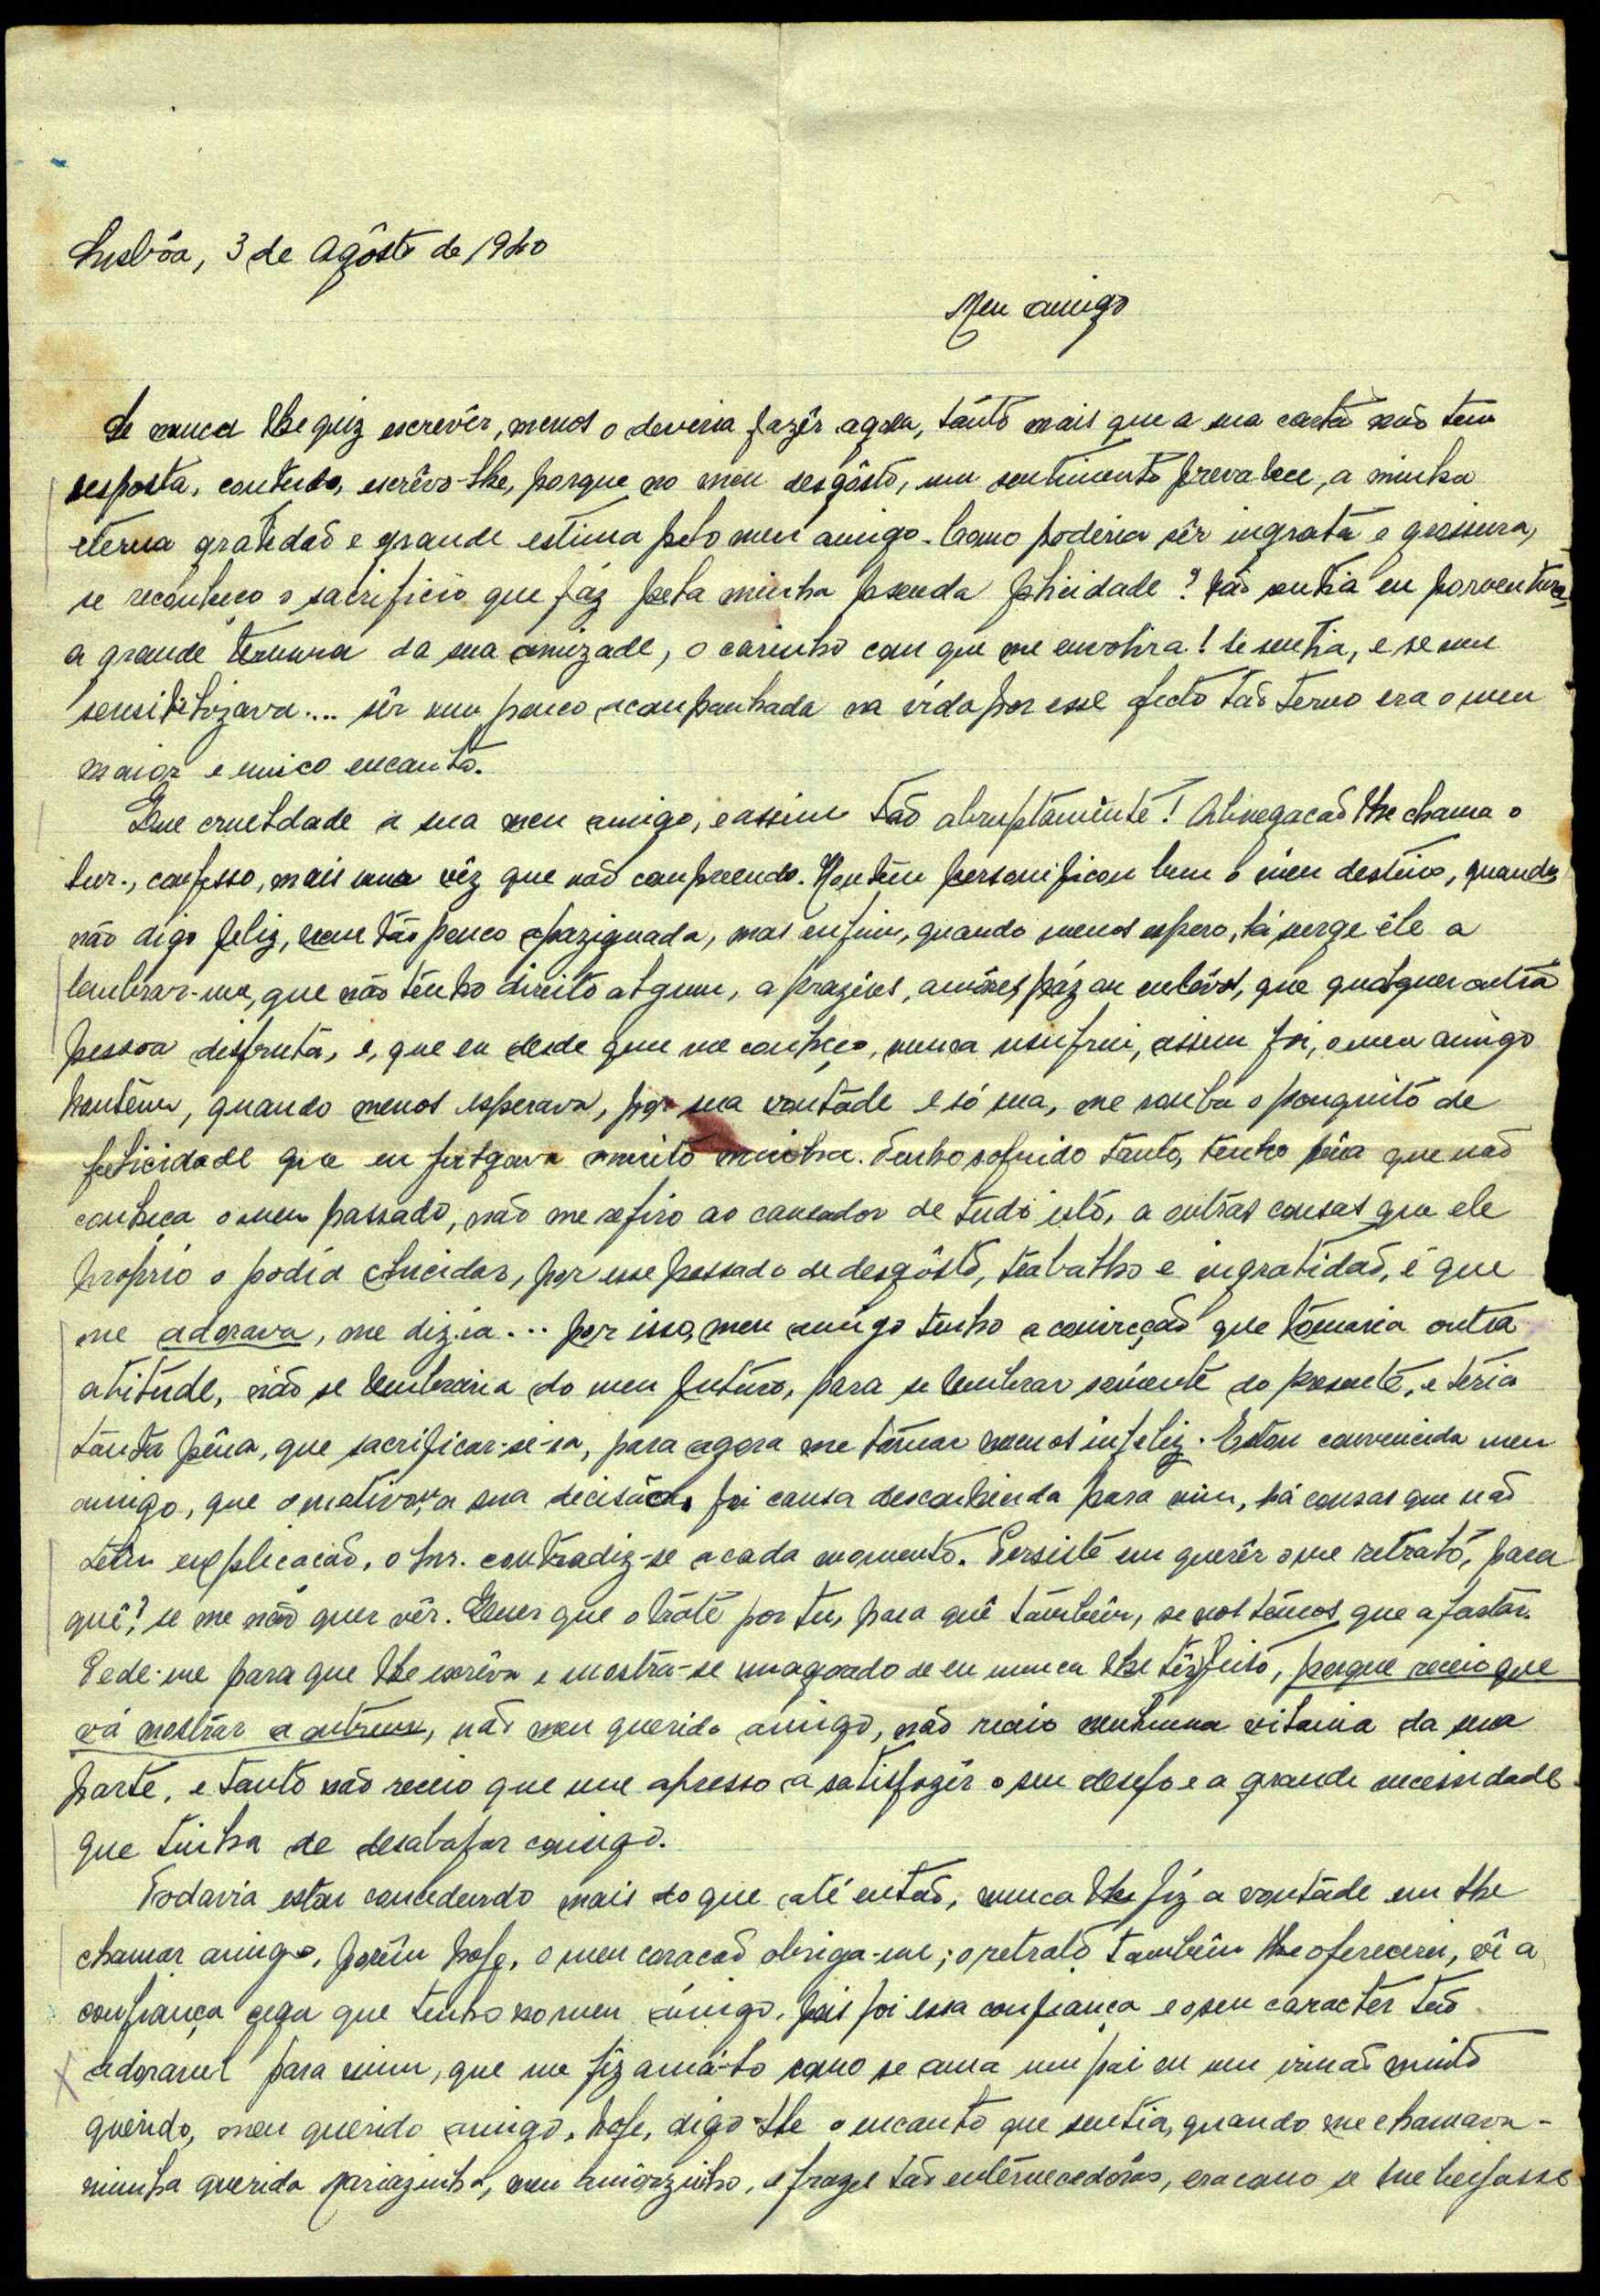 Lisbôa, 3 de Agôsto de 1940
Meu amigo
Se nunca lhe quiz escrevêr, menos o deveria fazêr agora, tânto mais que a sua carta não tem
resposta, contudo, escrêvo-lhe, porque no meu desgôsto, um sentimento prevalece, a minha
eterna gratidão e grande estima pelo meu amigo. Como poderia sêr ingrata e grosseira,
se reconheço o sacrificio que fáz pela minha pseuda felicidade? Não sentia eu porventura,
a grande ternura da sua amizade, o carinho com que me envolvia! Se sentia, e se me
sensibilizava.... sêr um pouco acompanhada na vida por esse afecto tão terno era o meu
maior e unico encanto.
Que crueldade a sua meu amigo, e assim tão abruptamente! Abnegacão lhe chama o
Snr., confesso, mais uma vêz que não compreendo. Hontêm personificou bem o meu destino, quando
não digo feliz, nem tão pouco apaziguada, mas enfim, quando menos espero, lá surge êle a
lembrar-me, que não tenho direito algum, a prazêres, amôres, páz ou enlêvos, que qualquer outra
pessoa disfruta, e, que eu desde que me conheço, nunca usufrui, assim foi, o meu amigo
hontêm, quando menos esperava, por sua vontade e só sua, me rouba o pouquito de
felicidade que eu julgava muito minha. Tenho sofrido tanto, tenho pêna que não
conheça o meu passado, não me refiro ao causador de tudo isto, a outras cousas que ele
proprio o podia elucidar, por esse passado de desgôsto, trabalho e ingratidão, é que
me adorava, me dizia... por isso, meu amigo tenho a convicção que tomaria outra
atitude, não se lembraria do meu futuro, para se lembrar sómente do presente, e teria
tânta pêna, que sacrificar-se-ia, para agora me tornar menos infeliz. Estou convencida meu
amigo, que o motivo, a sua decisão, foi causa desconhecida para mim, há cousas que não
têem explicacão, o Snr. contradiz-se a cada momento. Persiste em querêr o me retrato, para
quê? se me não quer vêr. Quer que o trate por tu, para quê tambêm, se nos têmos que afastar.
Pede-me para que lhe escrêva e mostra-se magoado de eu nunca lhe têr feito, porque receio que
vá mostrar a outrem, não meu querido amigo, não receio nenhuma vilania da sua
parte, e tanto não receio que me apresso a satisfazêr o seu desejo e a grande necessidade
que tinha de desabafar comigo.
Todavia estou concedendo mais do que até então, nunca lhe fiz a vontade em lhe
chamar amigo, porêm hoje, o meu coracão obriga-me; o retrato tambêm lhe oferecerei, vê a
confiança cega que tenho no meu amigo, pois foi essa confiança e o seu caracter tão
adoravel para mim, que me fêz amá-lo como se ama um pai ou um irmão muito
querido, meu querido amigo, hoje, digo-lhe o encanto que sentia, quando me chamava-
minha querida Mariazinha, meu amorzinho, e frazes tão enternecedôras, era como se me beijasse